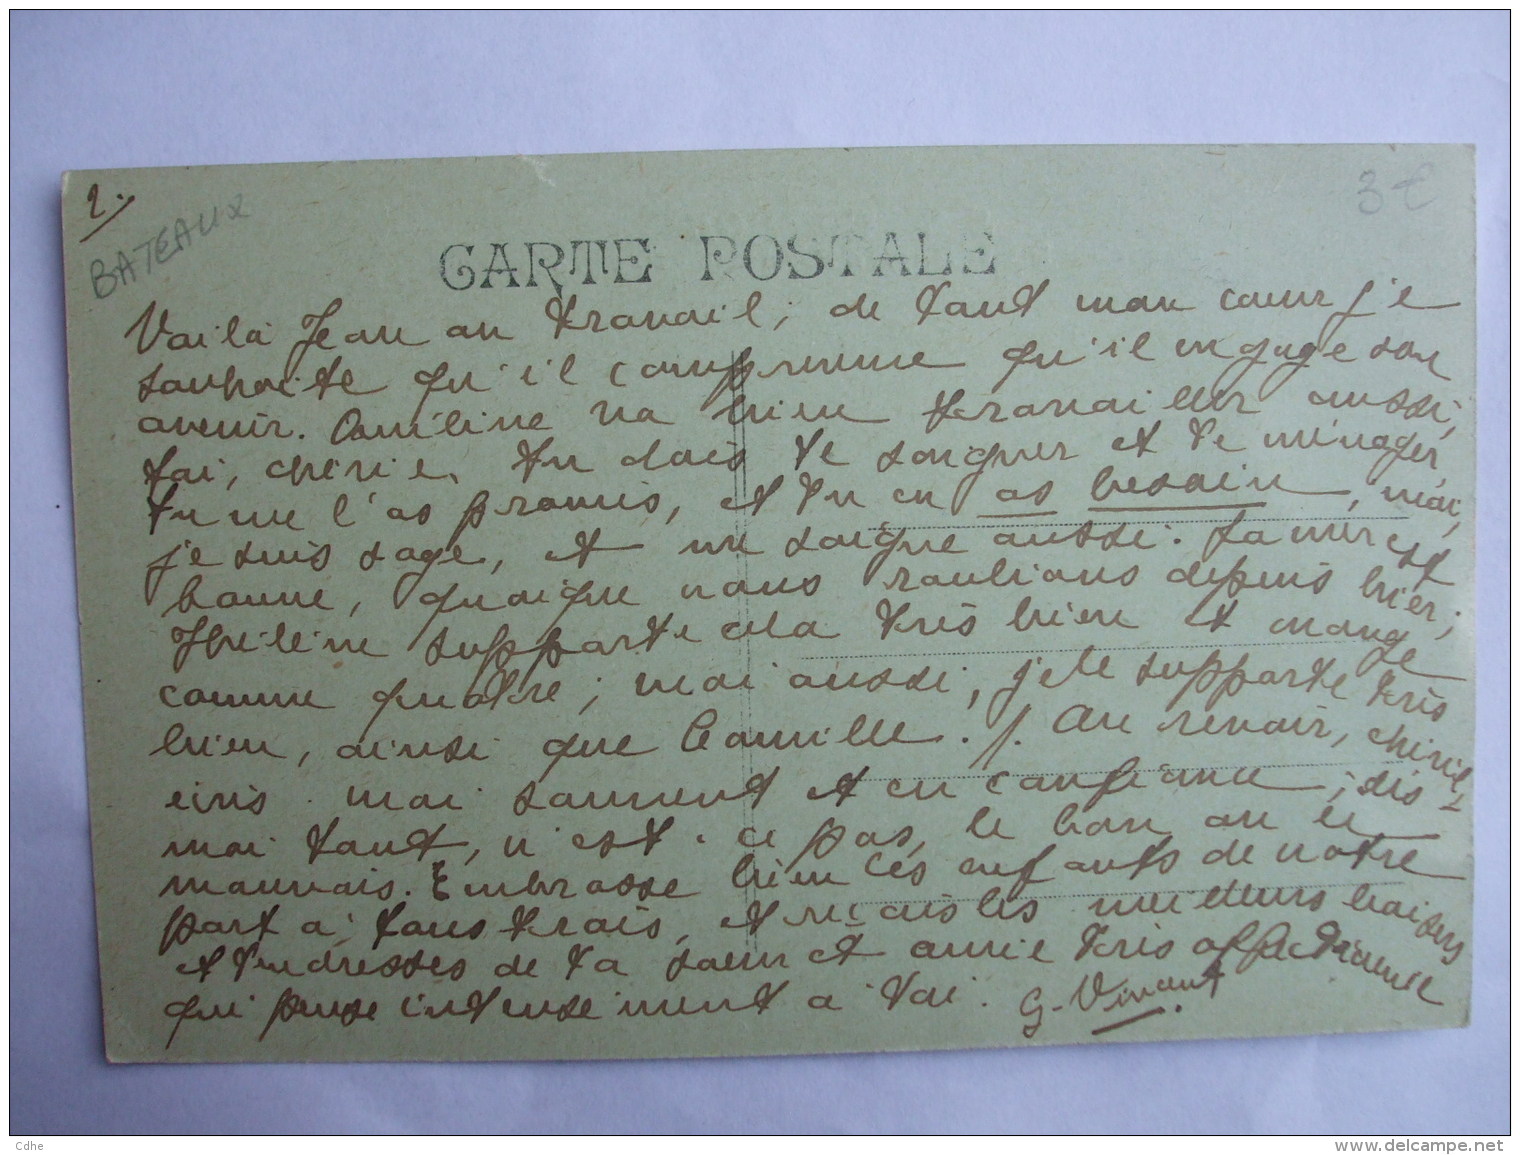 2.
BATEAUX
3 €
CARTE POSTALE
Voilà Jean au travail ; de tout mon cœur je
souhaite qu'il comprenne qu'il engage son
avenir. Omiline va bien travailler aussi,
toi, chérie, tu dois te soigner et te ménager,
tu me l'as promis, et tu en as besoin, moi,
je suis sage, et me soigne aussi. La mer est
bonne, quoique nous roulions depuis hier ;
supporte cela très bien et mange
comme quatre ; moi aussi, je le supporte très
bien, ainsi que Camille. Au revoir, chérie,
écris moi souvent et en confiance ; dis-
moi tout, n'est-ce pas, le bon ou le
mauvais. Embrasse bien les enfants de notre
part à tous trois, et reçois les meilleurs baisers
et tendresses de ta sœur et amie très affectionnée
qui pense intensément à toi. G. Vinant
Cdhe
www.delcampe.net